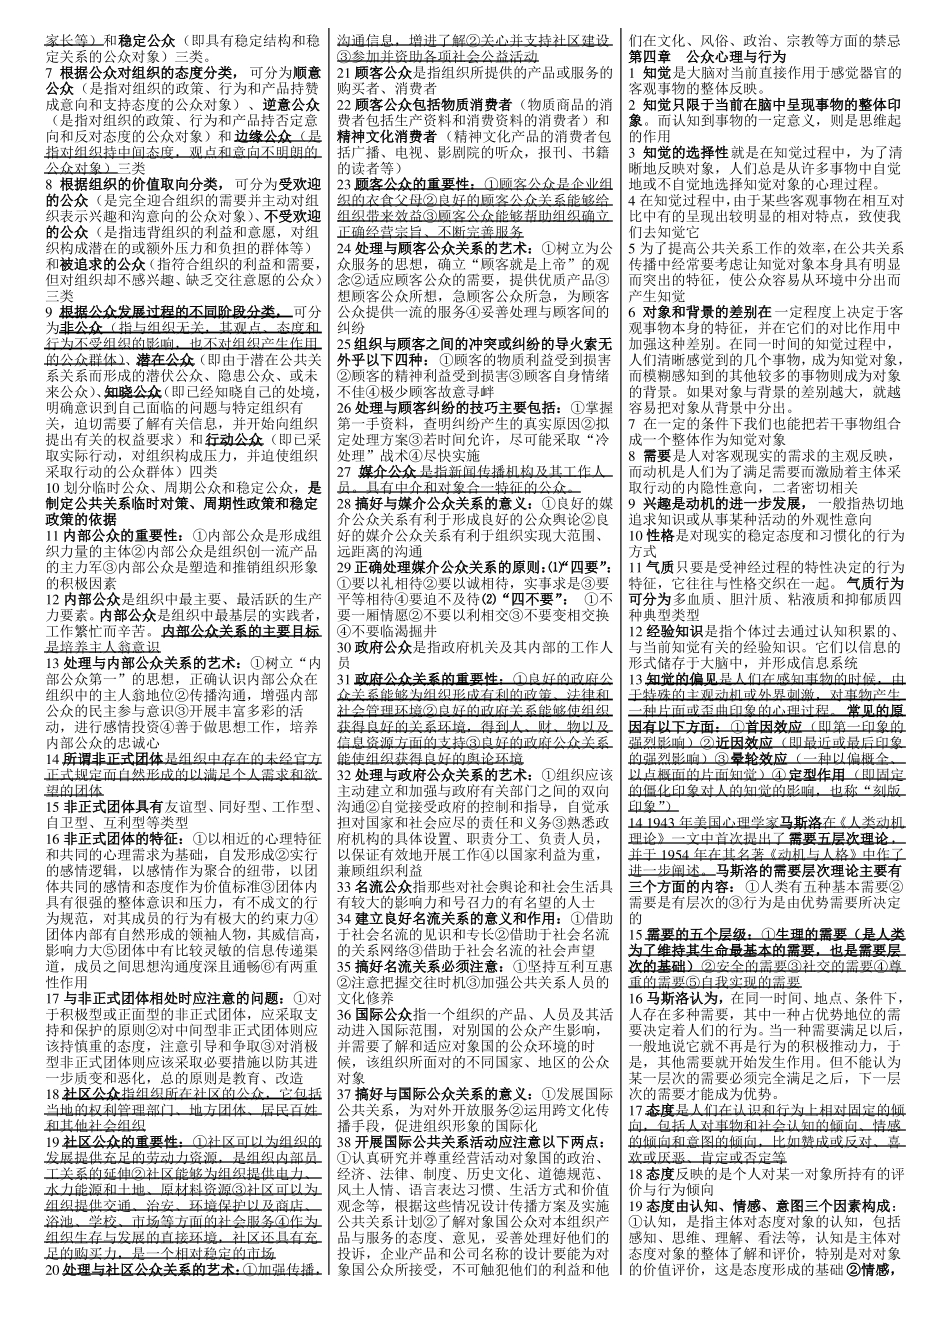 家长等）和稳定公众（即具有稳定结构和稳
定关系的公众对象）三类。
7 根据公众对组织的态度分类，可分为顺意
公众（是指对组织的政策、行为和产品持赞
成意向和支持态度的公众对象）、逆意公众
（是指对组织的政策、行为和产品持否定意
向和反对态度的公众对象）和边缘公众（是
指对组织持中间态度，观点和意向不明朗的
公众对象）三类
8 根据组织的价值取向分类，可分为受欢迎
的公众（是完全迎合组织的需要并主动对组
织表示兴趣和沟意向的公众对象）、不受欢迎
的公众（是指违背组织的利益和意愿，对组
织构成潜在的或额外压力和负担的群体等）
和被追求的公众（指符合组织的利益和需要，
但对组织却不感兴趣、缺乏交往意愿的公众）
三类
9 根据公众发展过程的不同阶段分类，可分
为非公众（指与组织无关，其观点、态度和
行为不受组织的影响，也不对组织产生作用
的公众群体）、潜在公众（即由于潜在公共关
系关系而形成的潜伏公众、隐患公众、或未
来公众）、知晓公众（即已经知晓自己的处境，
明确意识到自己面临的问题与特定组织有
关，迫切需要了解有关信息，并开始向组织
提出有关的权益要求）和行动公众（即已采
取实际行动，对组织构成压力，并迫使组织
采取行动的公众群体）四类
10 划分临时公众、周期公众和稳定公众，是
制定公共关系临时对策、周期性政策和稳定
政策的依据
11 内部公众的重要性：①内部公众是形成组
织力量的主体②内部公众是组织创一流产品
的主力军③内部公众是塑造和推销组织形象
的积极因素
12 内部公众是组织中最主要、最活跃的生产
力要素。内部公众是组织中最基层的实践者，
工作繁忙而辛苦。内部公众关系的主要目标
是培养主人翁意识
13 处理与内部公众关系的艺术：①树立“内
部公众第一”的思想，正确认识内部公众在
组织中的主人翁地位②传播沟通，增强内部
公众的民主参与意识③开展丰富多彩的活
动，进行感情投资④善于做思想工作，培养
内部公众的忠诚心
14 所谓非正式团体是组织中存在的未经官方
正式规定而自然形成的以满足个人需求和欲
望的团体
15 非正式团体具有友谊型、同好型、工作型、
自卫型、互利型等类型
16 非正式团体的特征：①以相近的心理特征
和共同的心理需求为基础，自发形成②实行
的感情逻辑，以感情作为聚合的纽带，以团
体共同的感情和态度作为价值标准③团体内
具有很强的整体意识和压力，有不成文的行
为规范，对其成员的行为有极大的约束力④
团体内部有自然形成的领袖人物，其威信高，
影响力大⑤团体中有比较灵敏的信息传递渠
道，成员之间思想沟通度深且通畅⑥有两重
性作用
17 与非正式团体相处时应注意的问题：①对
于积极型或正面型的非正式团体，应采取支
持和保护的原则②对中间型非正式团体则应
该持慎重的态度，注意引导和争取③对消极
型非正式团体则应该采取必要措施以防其进
一步质变和恶化，总的原则是教育、改造
18 社区公众指组织所在社区的公众，它包括
当地的权利管理部门、地方团体、居民百姓
和其他社会组织
19 社区公众的重要性：①社区可以为组织的
发展提供充足的劳动力资源，是组织内部员
工关系的延伸②社区能够为组织提供电力、
水力能源和土地、原材料资源③社区可以为
组织提供交通、治安、环境保护以及商店、
浴池、学校、市场等方面的社会服务④作为
组织生存与发展的直接环境，社区还具有充
足的购买力，是一个相对稳定的市场
20 处理与社区公众关系的艺术：①加强传播，
沟通信息，增进了解②关心并支持社区建设
③参加并资助各项社会公益活动
21 顾客公众是指组织所提供的产品或服务的
购买者、消费者
22 顾客公众包括物质消费者（物质商品的消
费者包括生产资料和消费资料的消费者）和
精神文化消费者（精神文化产品的消费者包
括广播、电视、影剧院的听众，报刊、书籍
的读者等）
23 顾客公众的重要性：①顾客公众是企业组
织的衣食父母②良好的顾客公众关系能够给
组织带来效益③顾客公众能够帮助组织确立
正确经营宗旨、不断完善服务
24 处理与顾客公众关系的艺术：①树立为公
众服务的思想，确立“顾客就是上帝”的观
念②适应顾客公众的需要，提供优质产品③
想顾客公众所想，急顾客公众所急，为顾客
公众提供一流的服务④妥善处理与顾客间的
纠纷
25 组织与顾客之间的冲突或纠纷的导火索无
外乎以下四种：①顾客的物质利益受到损害
②顾客的精神利益受到损害③顾客自身情绪
不佳④极少顾客故意寻衅
26 处理与顾客纠纷的技巧主要包括：①掌握
第一手资料，查明纠纷产生的真实原因②拟
定处理方案③若时间允许，尽可能采取“冷
处理”战术④尽快实施
27 媒介公众是指新闻传播机构及其工作人
员。具有中介和对象合一特征的公众。
28 搞好与媒介公众关系的意义：①良好的媒
介公众关系有利于形成良好的公众舆论②良
好的媒介公众关系有利于组织实现大范围、
远距离的沟通
29 正确处理媒介公众关系的原则：⑴“四要”：
①要以礼相待②要以诚相待，实事求是③要
平等相待④要迫不及待⑵“四不要”：①不
要一厢情愿②不要以利相交③不要变相交换
④不要临渴掘井
30 政府公众是指政府机关及其内部的工作人
员
31 政府公众关系的重要性：①良好的政府公
众关系能够为组织形成有利的政策、法律和
社会管理环境②良好的政府关系能够使组织
获得良好的关系环境，得到人、财、物以及
信息资源方面的支持③良好的政府公众关系
能使组织获得良好的舆论环境
32 处理与政府公众关系的艺术：①组织应该
主动建立和加强与政府有关部门之间的双向
沟通②自觉接受政府的控制和指导，自觉承
担对国家和社会应尽的责任和义务③熟悉政
府机构的具体设置、职责分工、负责人员，
以保证有效地开展工作④以国家利益为重，
兼顾组织利益
33 名流公众指那些对社会舆论和社会生活具
有较大的影响力和号召力的有名望的人士
34 建立良好名流关系的意义和作用：①借助
于社会名流的见识和专长②借助于社会名流
的关系网络③借助于社会名流的社会声望
35 搞好名流关系必须注意：①坚持互利互惠
②注意把握交往时机③加强公共关系人员的
文化修养
36 国际公众指一个组织的产品、人员及其活
动进入国际范围，对别国的公众产生影响，
并需要了解和适应对象国的公众环境的时
候，该组织所面对的不同国家、地区的公众
对象
37 搞好与国际公众关系的意义：①发展国际
公共关系，为对外开放服务②运用跨文化传
播手段，促进组织形象的国际化
38 开展国际公共关系活动应注意以下两点：
①认真研究并尊重经营活动对象国的政治、
经济、法律、制度、历史文化、道德规范、
风土人情、语言表达习惯、生活方式和价值
观念等，根据这些情况设计传播方案及实施
公共关系计划②了解对象国公众对本组织产
品与服务的态度、意见，妥善处理好他们的
投诉，企业产品和公司名称的设计要能为对
象国公众所接受，不可触犯他们的利益和他
们在文化、风俗、政治、宗教等方面的禁忌
第四章　公众心理与行为
1 知觉是大脑对当前直接作用于感觉器官的
客观事物的整体反映。
2 知觉只限于当前在脑中呈现事物的整体印
象。而认知到事物的一定意义，则是思维起
的作用
3 知觉的选择性就是在知觉过程中，为了清
晰地反映对象，人们总是从许多事物中自觉
地或不自觉地选择知觉对象的心理过程。
4 在知觉过程中，由于某些客观事物在相互对
比中有的呈现出较明显的相对特点，致使我
们去知觉它
5 为了提高公共关系工作的效率，在公共关系
传播中经常要考虑让知觉对象本身具有明显
而突出的特征，使公众容易从环境中分出而
产生知觉
6 对象和背景的差别在一定程度上决定于客
观事物本身的特征，并在它们的对比作用中
加强这种差别。在同一时间的知觉过程中，
人们清晰感觉到的几个事物，成为知觉对象，
而模糊感知到的其他较多的事物则成为对象
的背景。如果对象与背景的差别越大，就越
容易把对象从背景中分出。
7 在一定的条件下我们也能把若干事物组合
成一个整体作为知觉对象
8 需要是人对客观现实的需求的主观反映，
而动机是人们为了满足需要而激励着主体采
取行动的内隐性意向，二者密切相关
9 兴趣是动机的进一步发展，一般指热切地
追求知识或从事某种活动的外观性意向
10 性格是对现实的稳定态度和习惯化的行为
方式
11 气质只要是受神经过程的特性决定的行为
特征，它往往与性格交织在一起。气质行为
可分为多血质、胆汁质、粘液质和抑郁质四
种典型类型
12 经验知识是指个体过去通过认知积累的、
与当前知觉有关的经验知识。它们以信息的
形式储存于大脑中，并形成信息系统
13 知觉的偏见是人们在感知事物的时候，由
于特殊的主观动机或外界刺激，对事物产生
一种片面或歪曲印象的心理过程。常见的原
因有以下方面：①首因效应（即第一印象的
强烈影响）②近因效应（即最近或最后印象
的强烈影响）③晕轮效应（一种以偏概全，
以点概面的片面知觉）④定型作用（即固定
的僵化印象对人的知觉的影响，也称“刻版
印象”）
14 1943 年美国心理学家马斯洛在《人类动机
理论》一文中首次提出了需要五层次理论，
并于 1954 年在其名著《动机与人格》中作了
进一步阐述。马斯洛的需要层次理论主要有
三个方面的内容：①人类有五种基本需要②
需要是有层次的③行为是由优势需要所决定
的
15 需要的五个层级：①生理的需要（是人类
为了维持其生命最基本的需要，也是需要层
次的基础）②安全的需要③社交的需要④尊
重的需要⑤自我实现的需要
16 马斯洛认为，在同一时间、地点、条件下，
人存在多种需要，其中一种占优势地位的需
要决定着人们的行为。当一种需要满足以后，
一般地说它就不再是行为的积极推动力，于
是，其他需要就开始发生作用。但不能认为
某一层次的需要必须完全满足之后，下一层
次的需要才能成为优势。
17 态度是人们在认识和行为上相对固定的倾
向，包括人对事物和社会认知的倾向、情感
的倾向和意图的倾向，比如赞成或反对、喜
欢或厌恶、肯定或否定等
18 态度反映的是个人对某一对象所持有的评
价与行为倾向
19 态度由认知、情感、意图三个因素构成：
①认知，是指主体对态度对象的认知，包括
感知、思维、理解、看法等，认知是主体对
态度对象的整体了解和评价，特别是对对象
的价值评价，这是态度形成的基础②情感，